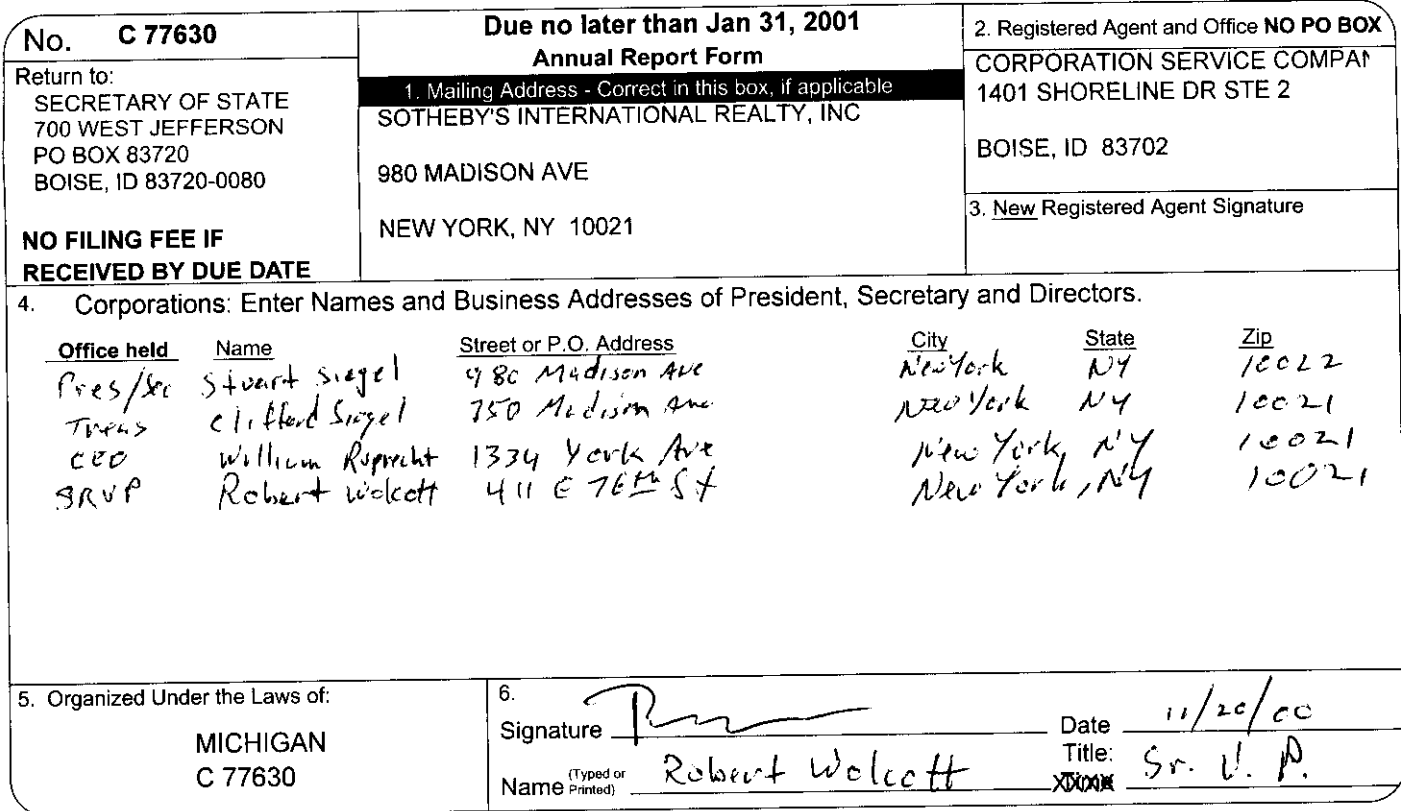 No. C 77630
Return to:
SECRETARY OF STATE
700 WEST JEFFERSON
PO BOX 83720
BOISE, ID 83720-0080
NO FILING FEE IF
RECEIVED BY DUE DATE
Due no later than Jan 31, 2001
Annual Report Form
1. Mailing Address - Correct in this box, if applicable
SOTHEBY'S INTERNATIONAL REALTY, INC
980 MADISON AVE
NEW YORK, NY 10021
2. Registered Agent and Office NO PO BOX
CORPORATION SERVICE COMPAN
1401 SHORELINE DR STE 2
BOISE, ID 83702
3. New Registered Agent Signature
4. Corporations: Enter Names and Business Addresses of President, Secretary and Directors.
Office held Name Street or P.O. Address City State Zip
Pres/Sec Stuart Siegel 980 Madison Ave New York NY 10022
Treas Clifford Siegel 750 Madison Ave New York NY 10021
CEO William Ruprecht 1334 York Ave New York, NY 10021
SRVP Robert Wolcott 411 E 76th St New York, NY 10021
5. Organized Under the Laws of:
MICHIGAN
C 77630
6.
Signature Date 11/20/00
Name (Typed or Printed) Robert Wolcott Title: Sr. V. P.